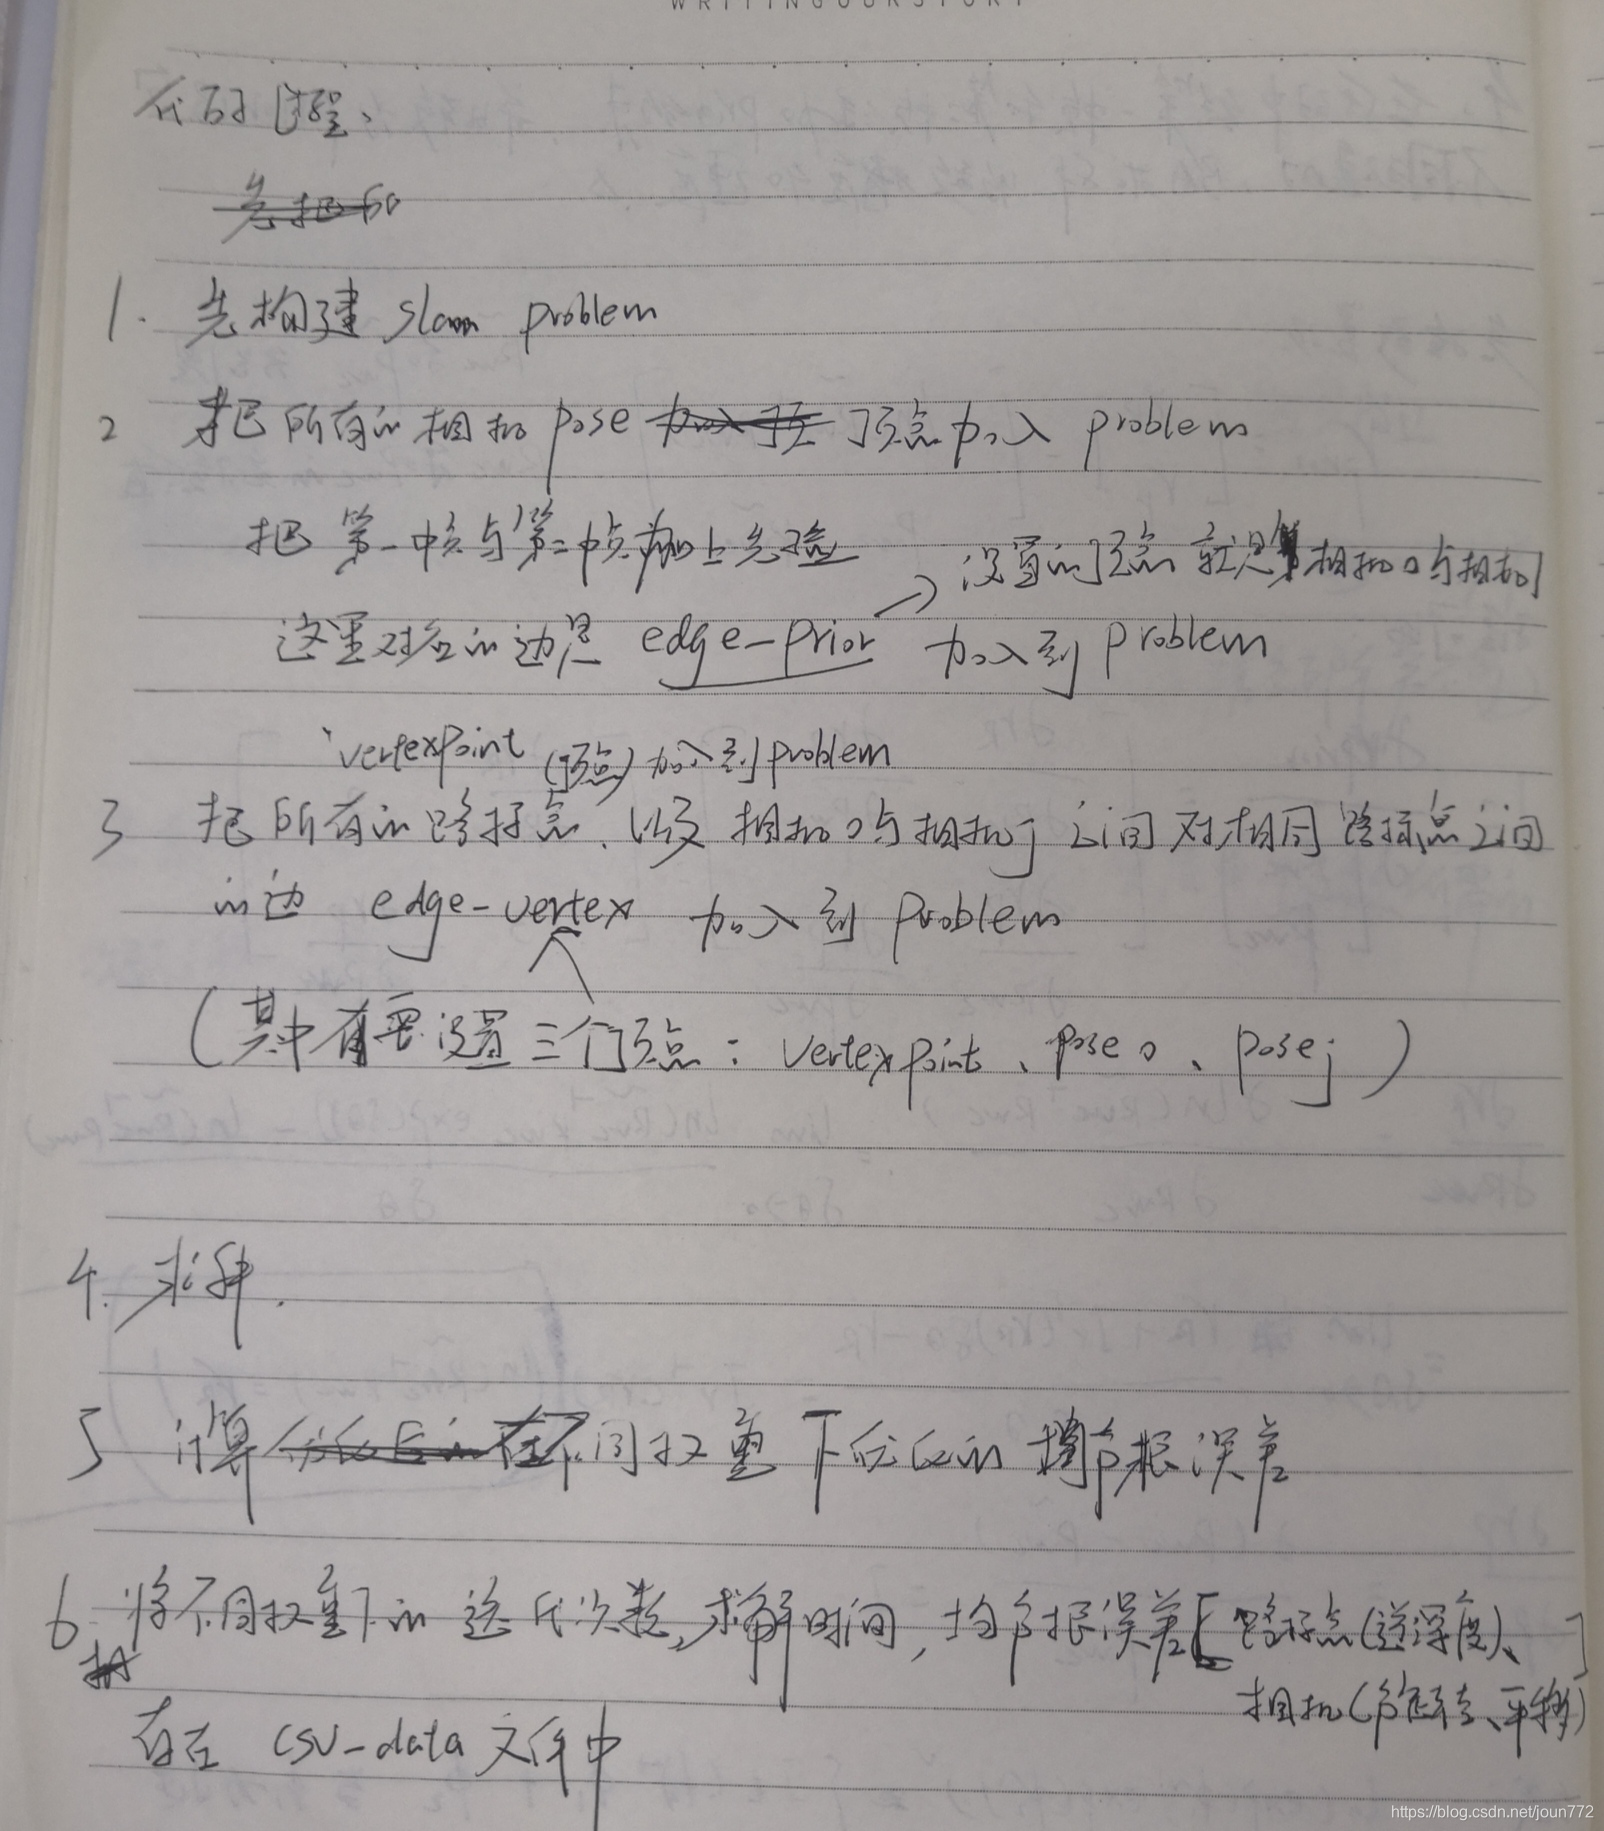 WRITINGOURSTORY
代码过程、
先把所
1. 先构建 slam problem
2 把所有的相机 pose 加入顶 顶点加入 problem
把第一帧与第二帧加上先验
→ 设置的顶点就是相机0与相机1
这里对应的边是 edge-prior 加入到 problem
vertexpoint (顶点) 加入到 problem
3 把所有的路标点、以及相机0与相机j之间对相同路标点之间
的边 edge-vertex 加入到 problem
(其中有要设置三个顶点: vertexpoint、pose0、posej)
4. 求解.
5 计算优化后的在不同权重下优化的均方根误差
6. 将不同权重下的迭代次数,求解时间,均方根误差[路标点(逆深度)、
相机(旋转、平移)]
存在 csv-data 文件中
https://blog.csdn.net/joun772